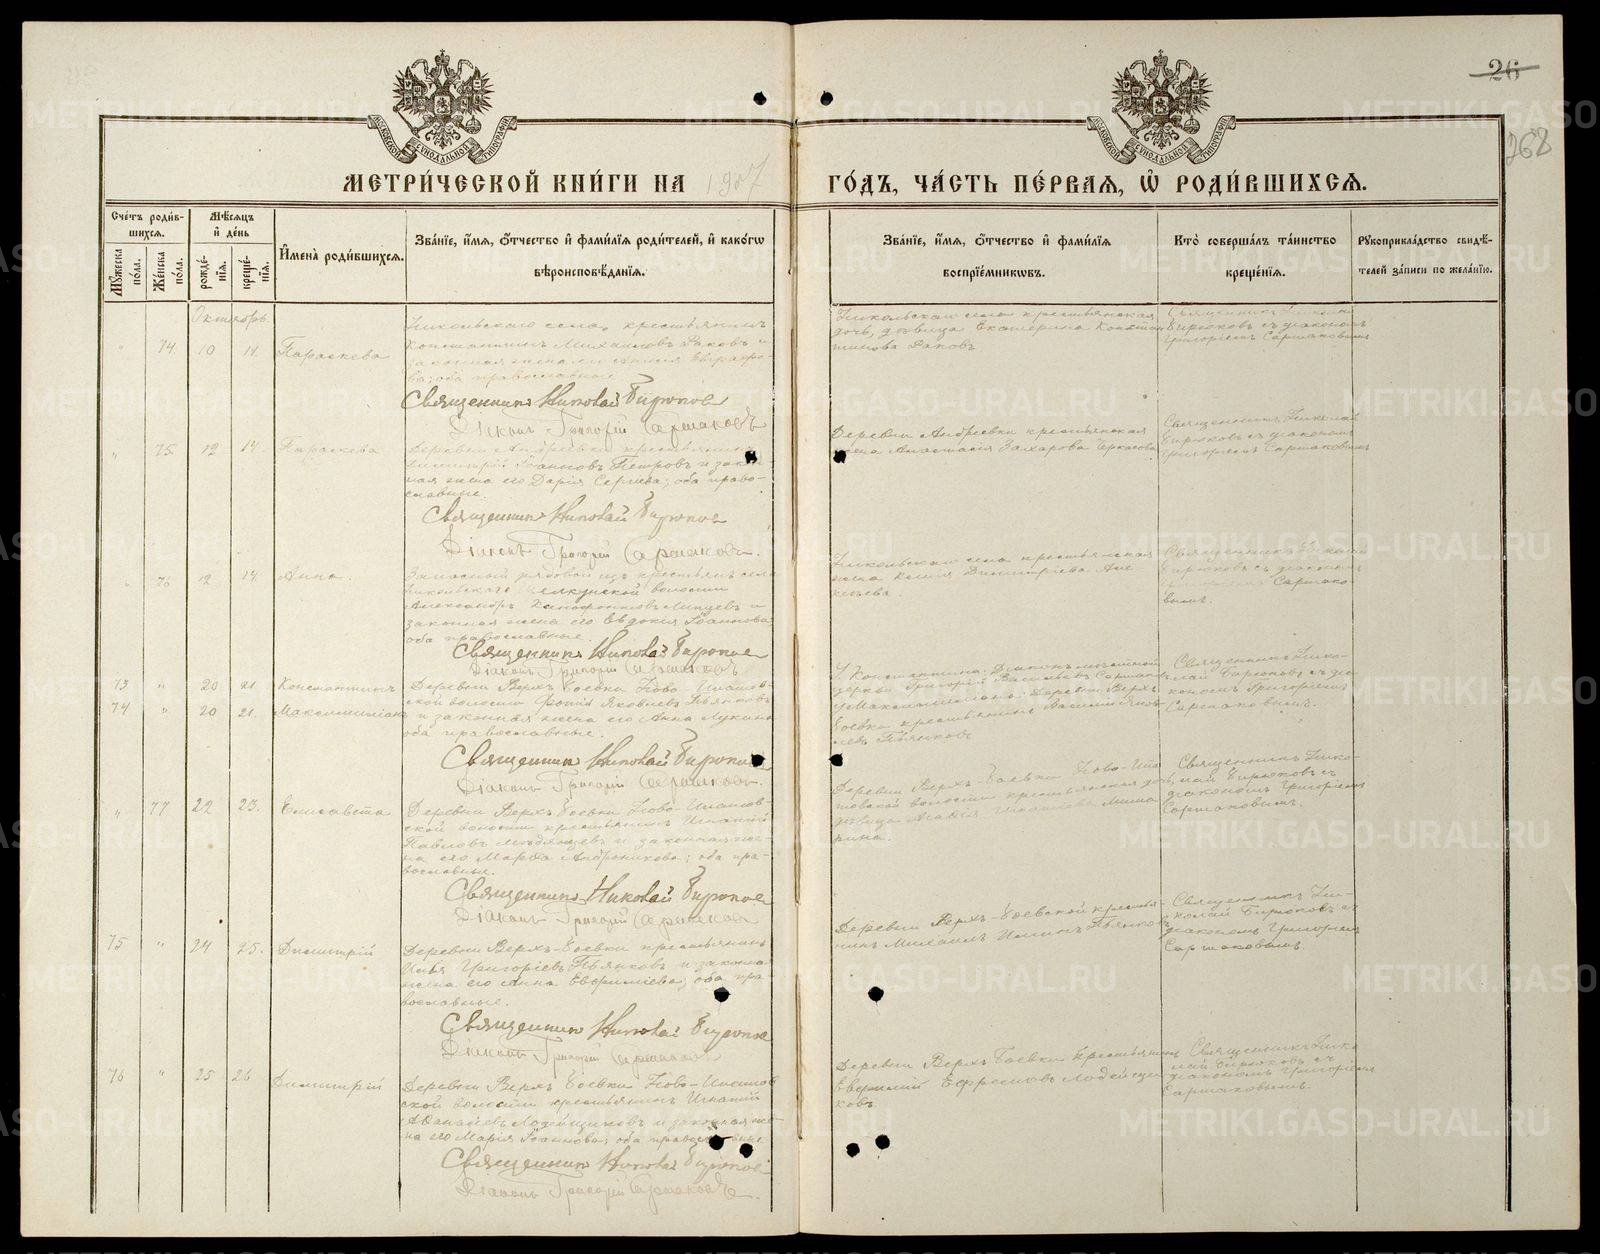 26
262
МЕТРИ́ЧЕСКОЙ КНИ́ГИ НА 1907 ГО́ДЪ, ЧА́СТЬ ПЕ́РВАЯ, Ѡ҆ РОДИ́ВШИХСЯ.
МОСКОВСКОЙ СѴНОДАЛЬНОЙ ТИПОГРАФІИ
МОСКОВСКОЙ СѴНОДАЛЬНОЙ ТИПОГРАФІИ
Сче́тъ роди́в-
шихся.
Мѣ́сяцъ
и҆ де́нь
Мꙋ́жеска по́ла.
Же́нска по́ла.
рожде́-нїя.
креще́-нїя.
И҆мена̀ роди́вшихся.
Зва́нїе, и҆́мя, ѻ҆́тчество и҆ фами́лїя роди́телей, и҆ како́гѡ
вѣроисповѣ́данїя.
Зва́нїе, и҆́мя, ѻ҆́тчество и҆ фами́лїя
воспрїе́мникѡвъ.
Кто̀ соверша́лъ та́инство
креще́нїя.
Рꙋкоприкла́дство свидѣ́-
телей за́писи по жела́нїю.
Октябрь.
" 74. 10 11. Параскева
Никольскаго села, крестьянинъ
Константинъ Михаиловъ Раковъ и
законная жена его
оба православные.
Священникъ Николай Бирюков
Діаконъ Григорій Саршаковъ
Никольскаго села крестьянская
дочь, девица Екатерина Констан-
тинова Раковъ
Священникъ Николай
Бирюковъ съ діакономъ
Григоріемъ Саршаковымъ
" 75. 12 14. Параскева
Деревни Андреевки крестьянинъ
Димитрій Іоанновъ Петровъ и закон-
ная жена его Дарія Сергіева; оба право-
славные.
Священникъ Николай Бирюков
Діаконъ Григорій Саршаковъ.
Деревни Андреевки крестьянская
жена Анастасія Захарова Черкасова
Священникъ Николай
Бирюковъ съ діакономъ
Григоріемъ Саршаковымъ
" 76 12 14. Анна.
Запасный рядовой изъ крестьянъ села
Никольскаго волости
Александръ и
законная жена его Евдокия Іоаннова
оба православные.
Священникъ Николай Бирюков
Діаконъ Григорій Саршаковъ
Никольскаго села крестьянская
жена Ксенія Димитріева Але-
ксеева.
Священникъ Николай
Бирюковъ съ діакономъ
Саршако-
вымъ.
73 " 20 21. Константинъ
74 " 20 21. Максимиліанъ
Деревни Верхъ-Боевки Ново-Ипатов-
ской волости Яковлевъ Пьянковъ
и законная жена его Анна Лукина
оба православные.
Священникъ Николай Бирюков
Діаконъ Григорій Саршаковъ
У Константина: Діаконъ мѣстной
церкви Григорій Васильевъ Саршаковъ
у Максимиліана: Деревни Верхъ-
Боевки крестьянинъ Василій Яков-
левъ Пьянковъ
Священникъ Нико-
лай Бирюковъ съ діа-
кономъ Григоріемъ
Саршаковымъ.
" 77 22 23. Елисавета
Деревни Верхъ-Боевки Ново-Ипатов-
ской волости крестьянинъ Игнатій
Павловъ и законная же-
на его Марфа Андроникова; оба пра-
вославные.
Священникъ Николай Бирюков
Діаконъ Григорій Саршаковъ
Деревни Верхъ-Боевки Ново-Ипа-
товской волости крестьянская дочь,
девица Агафія
Священникъ Нико-
лай Бирюковъ съ
діакономъ Григоріемъ
Саршаковымъ.
75 " 24 25. Димитрій
Деревни Верхъ-Боевки крестьянинъ
Илья Григорьевъ Пьянковъ и законная
жена его Анна Евфиміева; оба пра-
вославные.
Священникъ Николай Бирюков
Діаконъ Григорій Саршаковъ
Деревни Верхъ-Боевской крестья-
нинъ Михаилъ Ильинъ Пьянковъ
Священникъ Ни-
колай Бирюковъ съ
діакономъ Григоріемъ
Саршаковымъ.
76 " 25 26. Димитрій
Деревни Верхъ-Боевки Ново-Ипатов-
ской волости крестьянинъ Игнатій
Афанасіевъ Лодейщиковъ и законная же-
на его Марія Іоаннова; оба православные
Священникъ Николай Бирюков
Діаконъ Григорій Саршаковъ.
Деревни Верхъ-Боевки крестьянинъ
Ефремовъ Лодейщи-
ковъ.
Священникъ Нико-
лай Бирюковъ съ
діакономъ Григоріемъ
Саршаковымъ.
METRIKI.GASO-URAL.RU